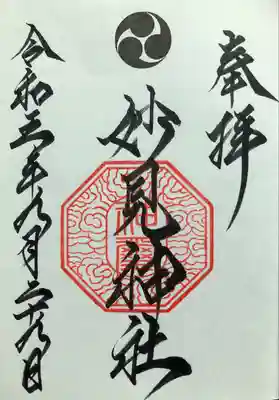 奉拝
妙見神社
令和五年九月二十九日